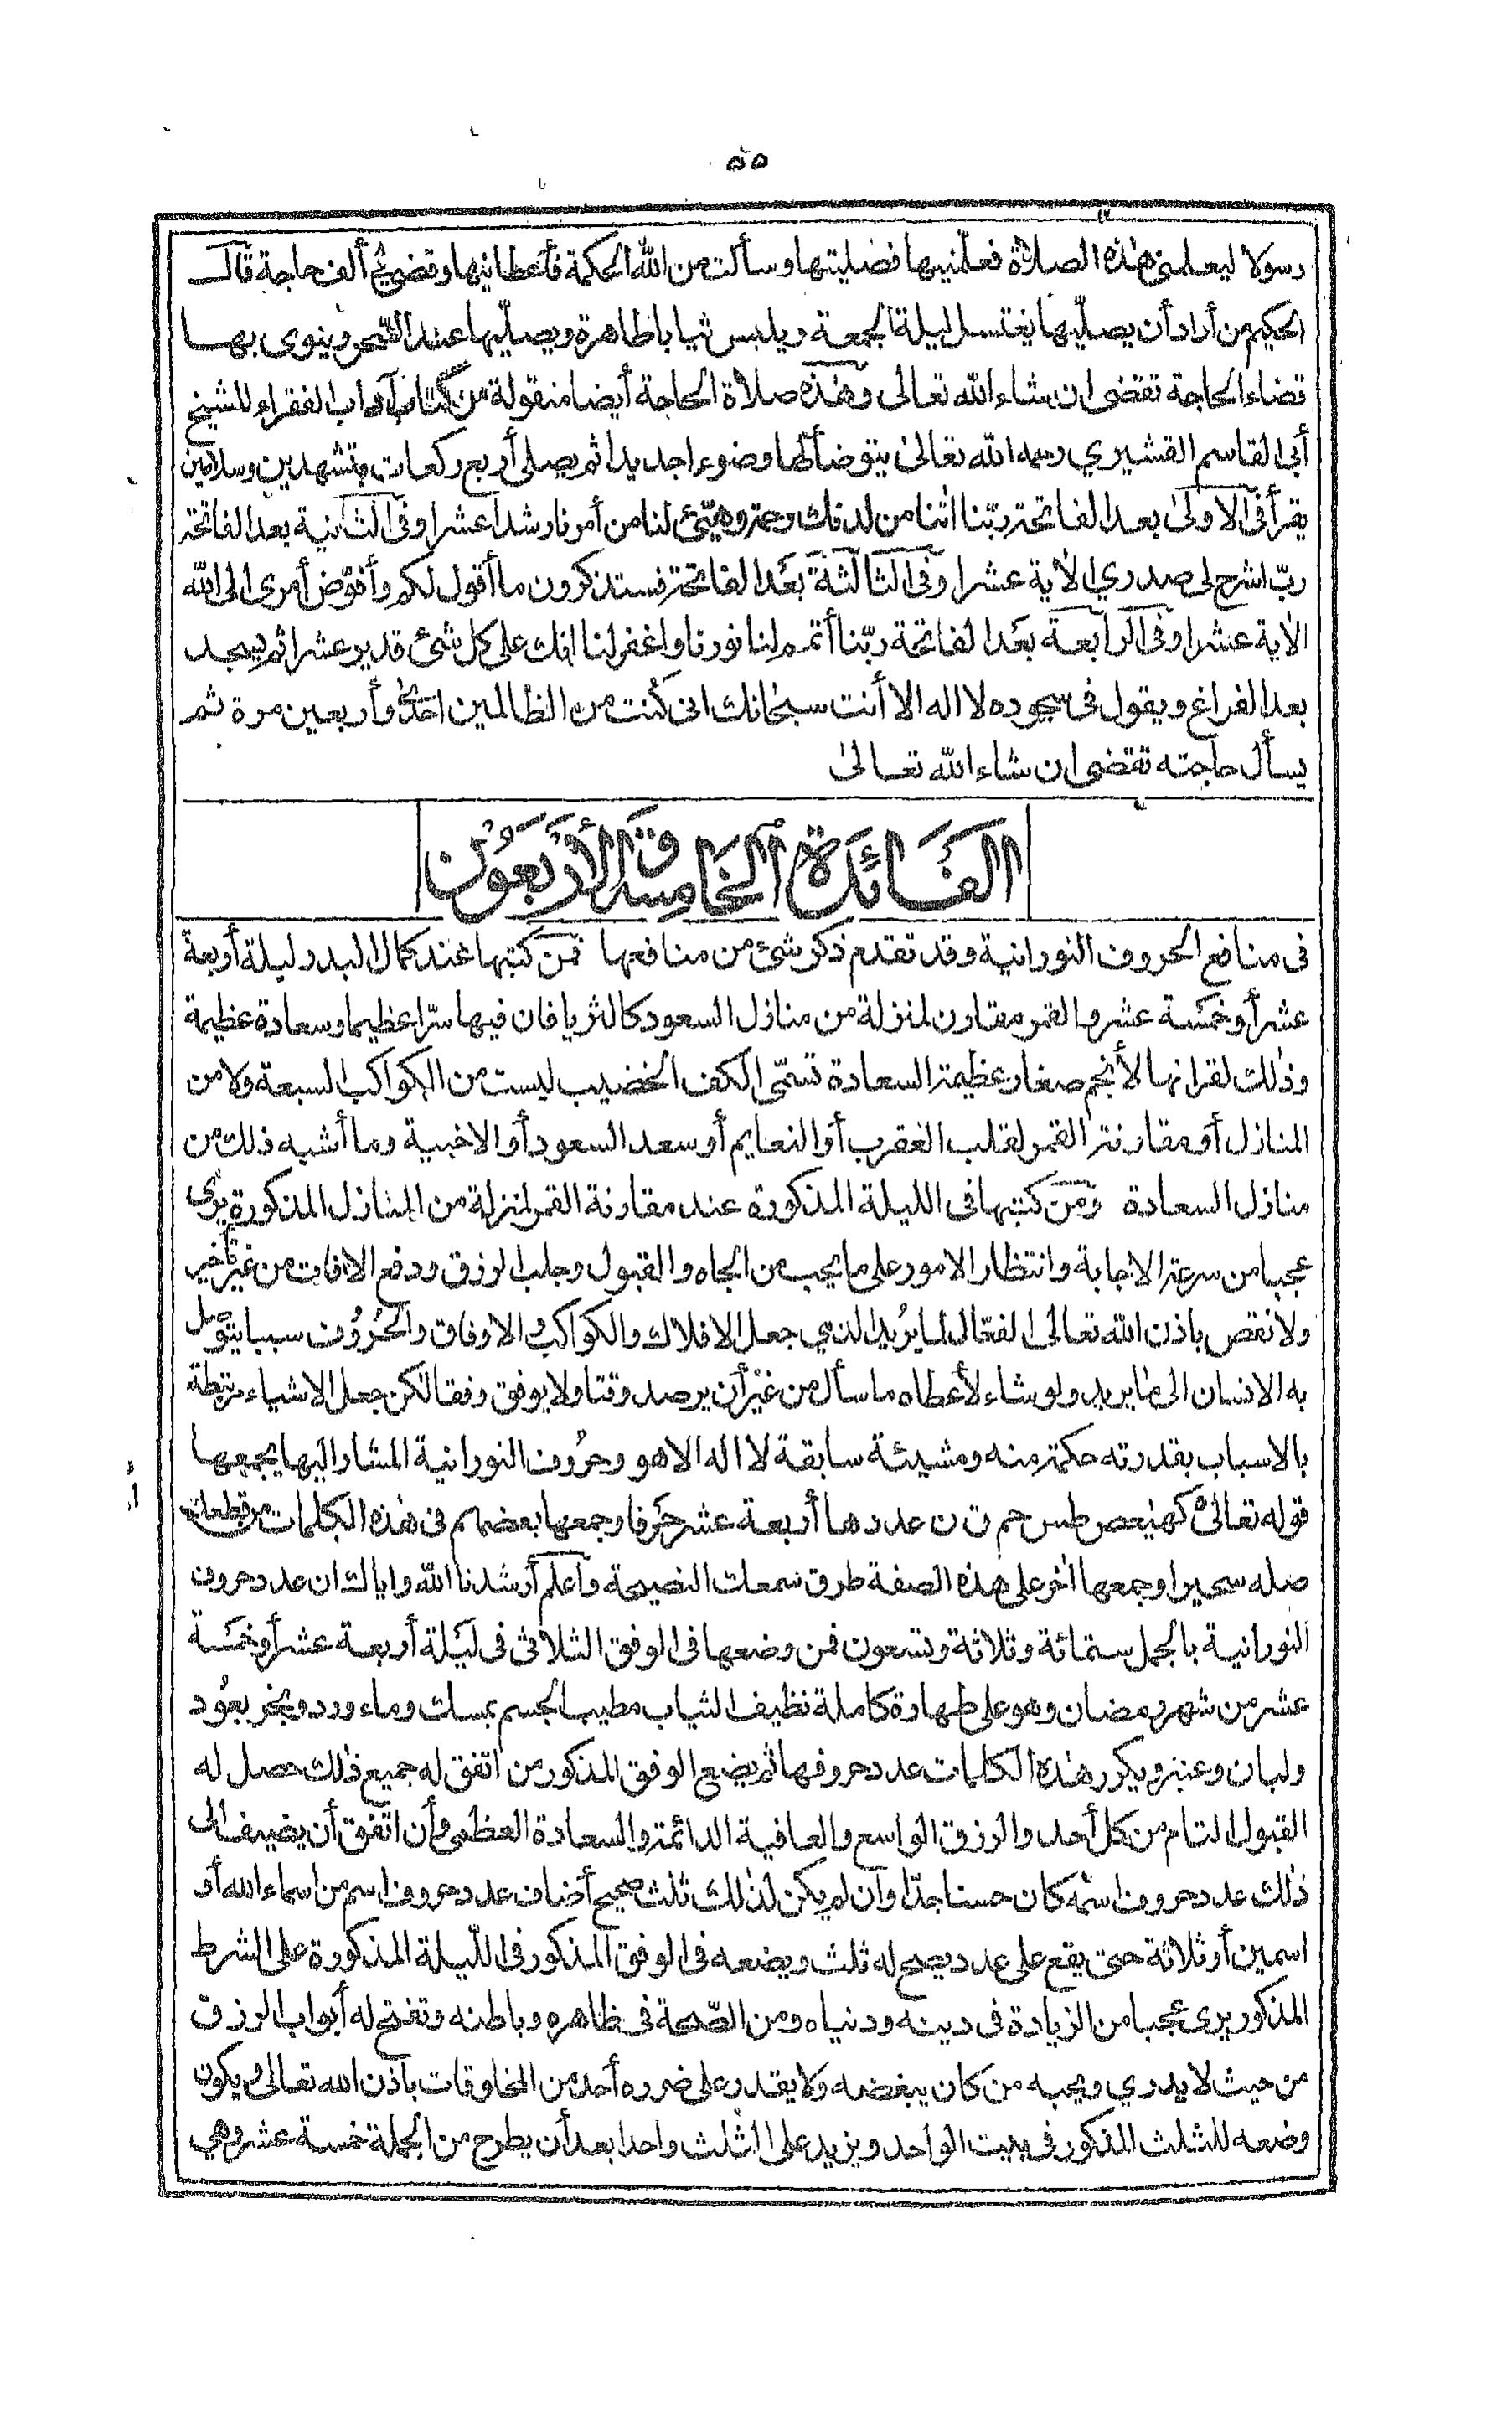 ٥٥
رسولا ليعلمني هذه الصلاة فعلمنيها فصليتها وسألت من الله الحكمة فأعطانيها وقضى لي ألف حاجة قال
الحكيم من أراد أن يصليها يغتسل ليلة الجمعة ويلبس ثيابا طاهرة ويصليها عند السحر وينوى بها
قضاء الحاجة تقضى ان شاء الله تعالى وهذه صلاة الحاجة أيضا منقولة من كتاب آداب الفقراء للشيخ
أبى القاسم القشيري رحمه الله تعالى يتوضأ لها وضوءا جديدا ثم يصلى أربع ركعات بتشهدين وسلامين
يقرأ فى الاولى بعد الفاتحة ربّنا اٰتنا من لدنك رحمة وهيّئ لنا من أمرنا رشدا عشرا وفى الثانية بعد الفاتحة
ربّ اشرح لى صدري الاٰية عشرا وفى الثالثة بعد الفاتحة فستذكرون ما أقول لكم وأفوّض أمرى الى الله
الاٰية عشرا وفى الرابعة بعد الفاتحة ربّنا أتمم لنا نورنا واغفر لنا انك على كل شئ قدير عشرا ثم يسجد
بعد الفراغ ويقول فى سجوده لا اله الا أنت سبحانك انى كنت من الظالمين احدى وأربعين مرة ثم
يسأل حاجته تقضى ان شاء الله تعالى
الفَائدَة الخَامِسَة وَالأَرْبَعُون
فى منافع الحروف النورانية وقد تقدم ذكر شئ من منافعها فمن كتبها عند كمال البدر ليلة أربعة
عشر أو خمسة عشر والقمر مقارن لمنزلة من منازل السعود كالثريا فان فيها سرّا عظيما وسعادة عظيمة
وذلك لقرانها لأنجم صغار عظيمة السعادة تسمّى الكف الخضيب ليست من الكواكب السبعة ولا من
المنازل أو مقارنة القمر لقلب العقرب أو النعايم أو سعد السعود أو الاخبية وما أشبه ذلك من
منازل السعادة ومن كتبها فى الليلة المذكورة عند مقارنة القمر لمنزلة من المنازل المذكورة يرى
عجبا من سرعة الاجابة وانتظار الامور على ما يحب من الجاه والقبول وجلب الرزق ودفع الاٰفات من غير تأخير
ولا نقص باذن الله تعالى الفعّال لما يريد الذي جعل الافلاك والكواكب والاوفاق والحروف سببا يتوصل
به الانسان الى ما يريد ولو شاء لأعطاه ما سأل من غير أن يرصد وقتا ولا يوفق وفقا لكن جعل الاشياء مرتبطة
بالاسباب بقدرته حكمة منه ومشيئة سابقة لا اله الا هو وحروف النورانية المشار اليها يجمعها
قوله تعالى كهيعص طس حم ق ن عددها أربعة عشر حرفا وجمعها بعضهم فى هذه الكلمات من قطعك
صله سحيرا وجمعها اٰخر على هذه الصفة طرق سمعك النصيحة واعلم أرشدنا الله واياك ان عدد حروف
النورانية بالجمل ستمائة وثلاثة وتسعون فمن وضعها فى الوفق الثلاثى فى ليلة أربعة عشر أو خمسة
عشر من شهر رمضان وهو على طهارة كاملة نظيف الثياب مطيب الجسم بمسك وماء ورد ويبخر بعود
ولبان وعنبر ويكرر هذه الكلمات عدد حروفها ثم يضع الوفق المذكور من اتفق له جميع ذلك حصل له
القبول التام من كل أحد والرزق الواسع والعافية الدائمة والسعادة العظمى وأن اتفق أن يضيف الى
ذلك عدد حروف اسمه كان حسنا جدّا وان لم يكن لذلك ثلث صحيح أضاف عدد حروف اسم من اسماء الله أو
اسمين أو ثلاثة حتى يقع على عدد يصح له ثلث ويضعه فى الوفق المذكور فى الليلة المذكورة على الشرط
المذكور يرى عجبا من الزيادة فى دينه ودنياه ومن الصّحة فى ظاهره وباطنه وتفتح له أبواب الرزق
من حيث لا يدري ويحبه من كان يبغضه ولا يقدر على ضرره أحد من المخلوقات باذن الله تعالى ويكون
وضعه للثلث المذكور فى بيت الواحد ويزيد على الثلث واحدا بعد أن يطرح من الجملة خمسة عشر وهي